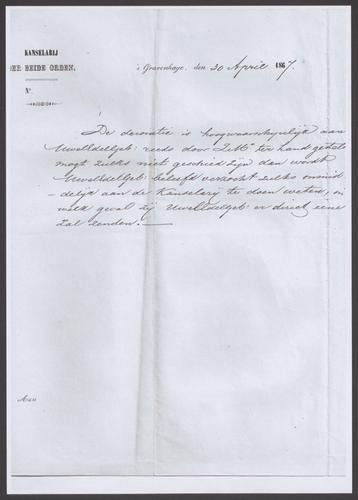 KANSELARIJ
DER BEIDE ORDEN.
's Gravenhage, den 30 April 1867.
N°.
De decoratie is hoogwaarschijnlijk aan
UWelEdelGeb: reeds door ZMs ter hand gesteld
mogt zulks niet geschied zijn dan wordt
UWelEdelGeb: beleefd verzocht zulks onmid
-delijk aan de Kanselarij te doen weten, in
welk geval zij UWelEdelGeb: er direct eene
zal zenden.
Aan